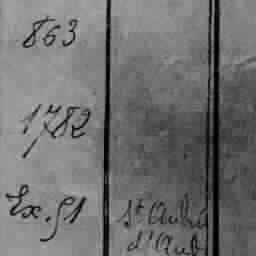 863
1782
Ex. 91
St Aubin
d'Aub